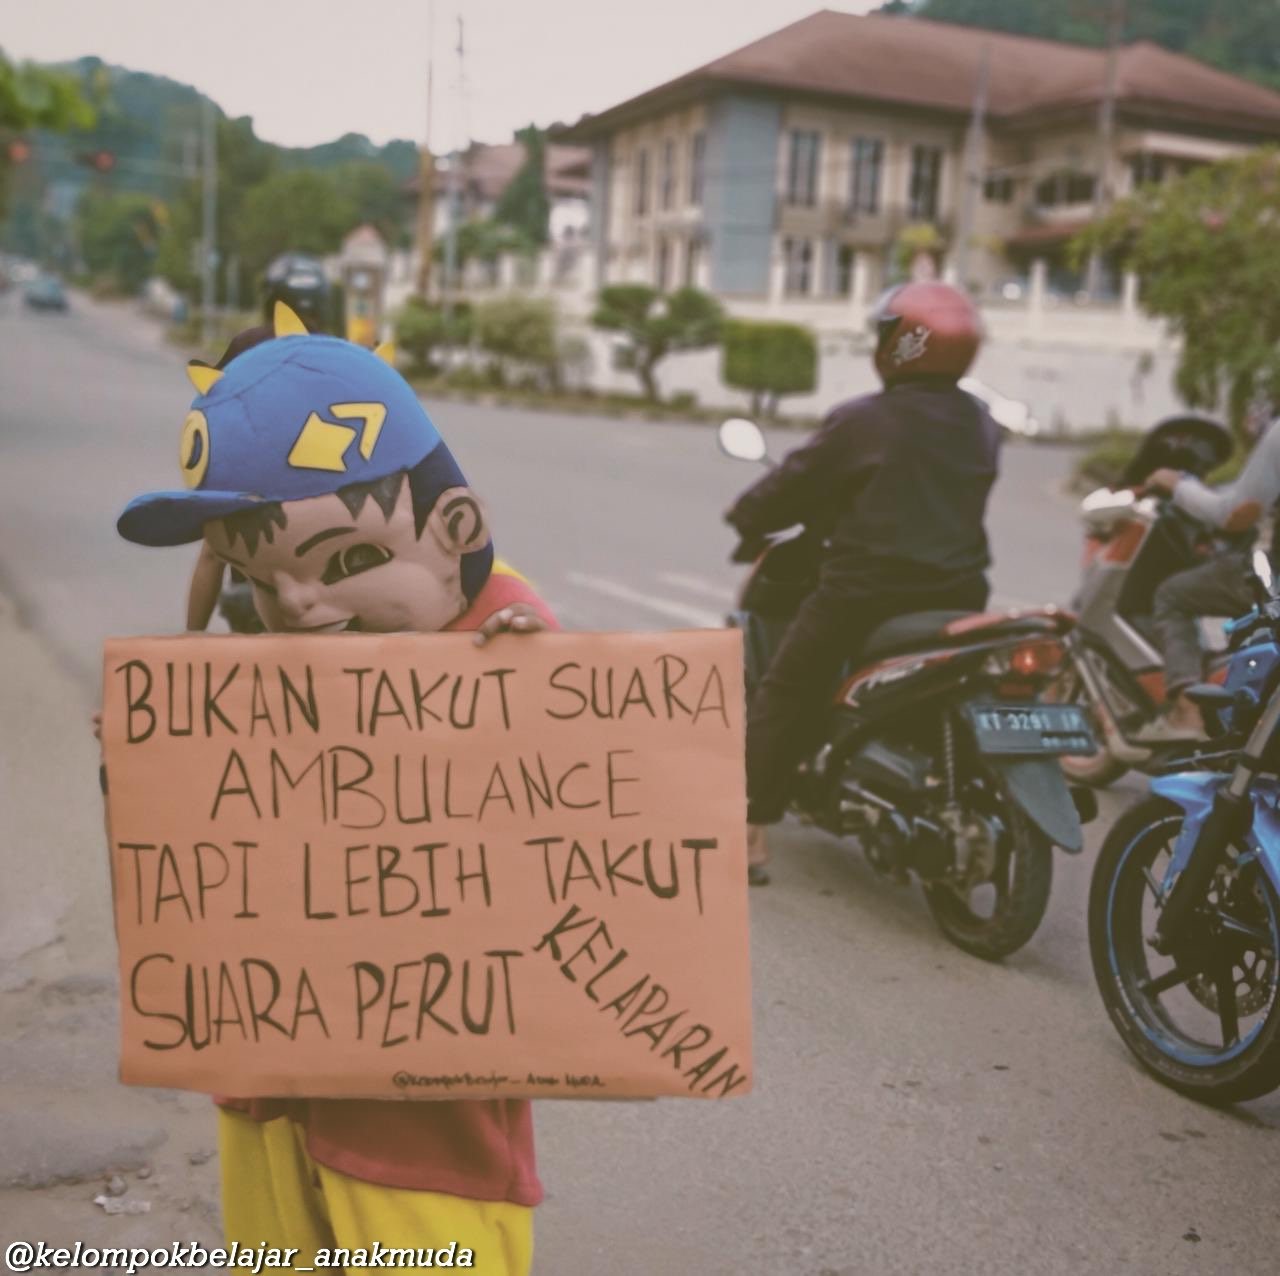 BUKAN TAKUT SUARA
AMBULANCE
TAPI LEBIH TAKUT
SUARA PERUT
KELAPARAN
@KELOMPOKBELAJAR_ANAK MUDA
KT 3291 IP
@kelompokbelajar_anakmuda